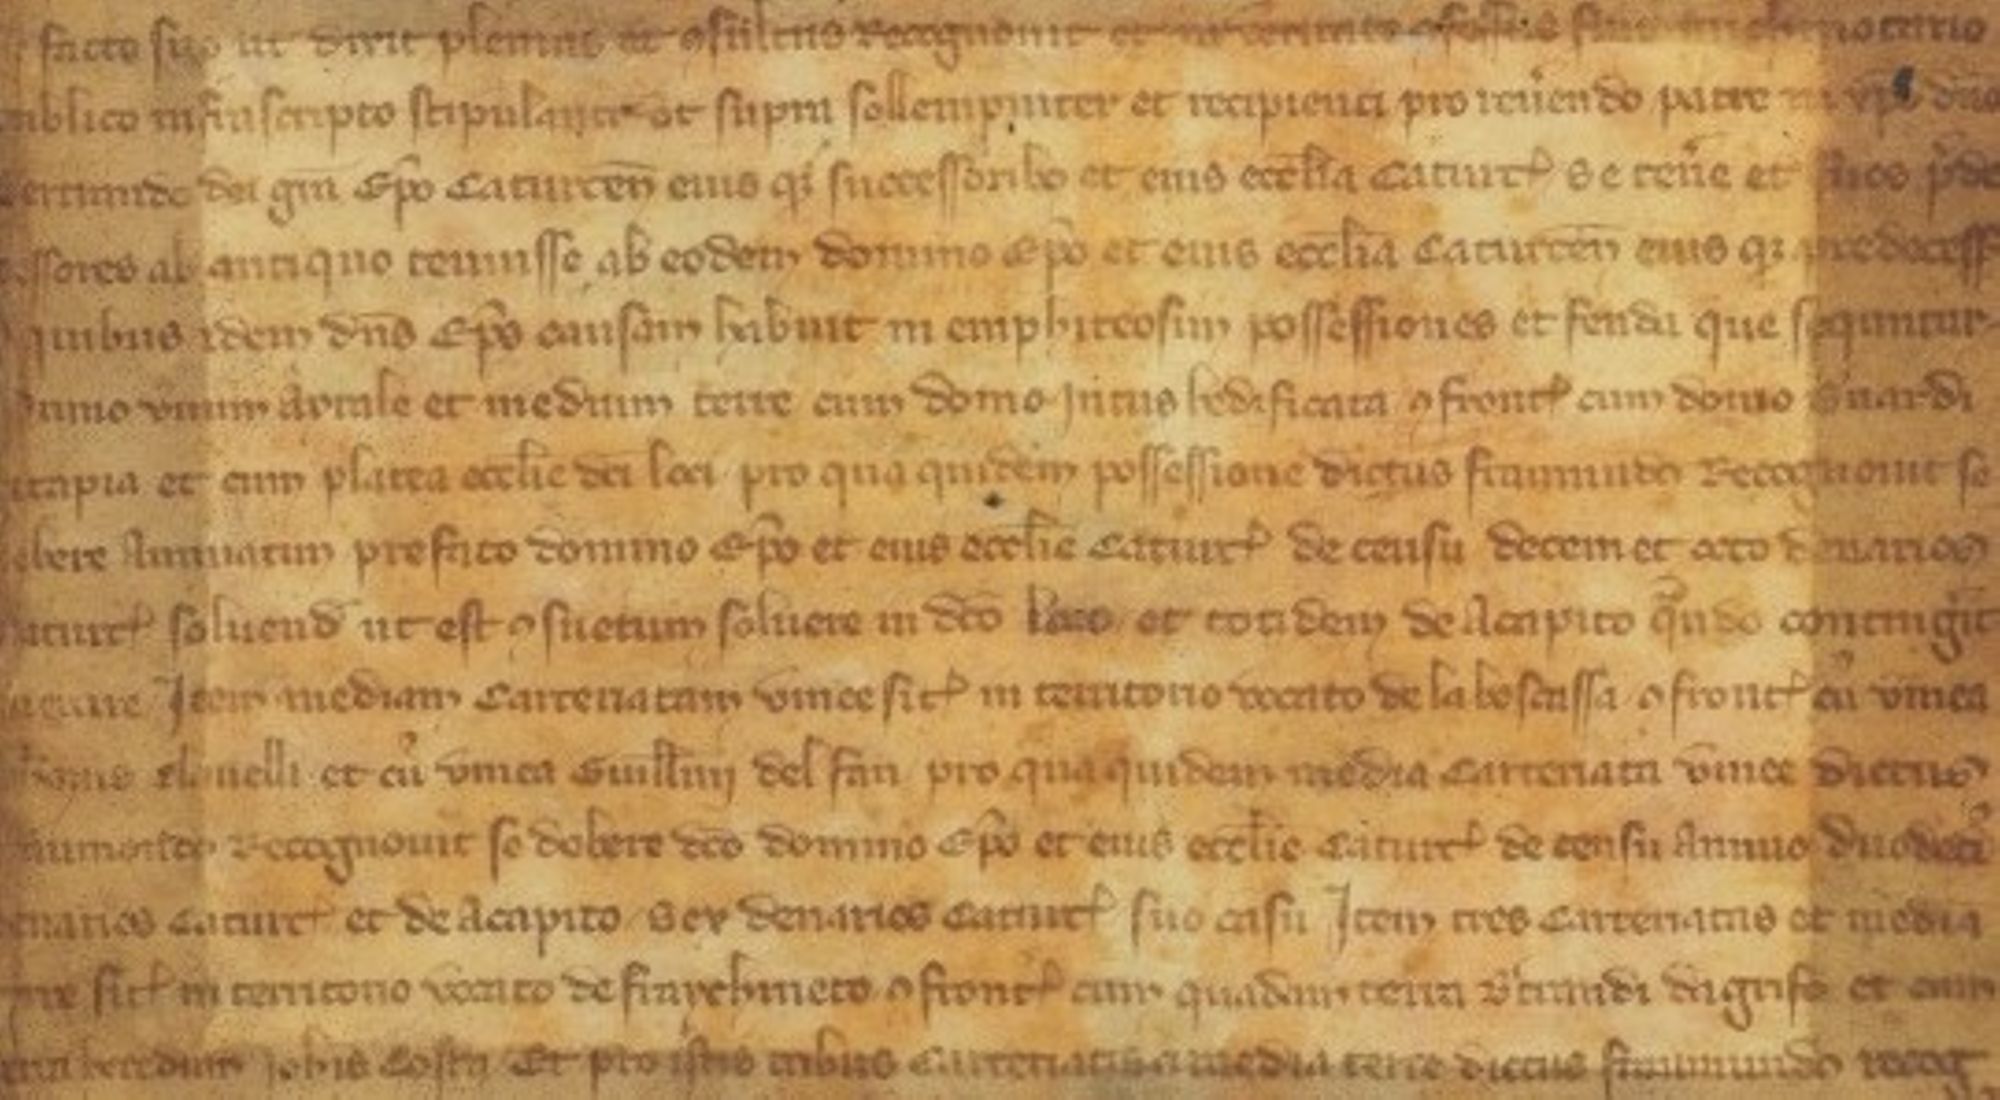 facto suo ut dixit plenius et ɔsultius Recognouit et in veritate ɔfessus fuit notario
publico infrascripto stipulanti ut supra sollempniter et recipienti pro reuendo patre in xpo dno
dei gra Epo Caturcen eius qꝫ successoribꝫ et eius ecclia Caturc se teñe et suos p̄de
cessores ab antiquo tenuisse ab eodem domino Epo et eius ecclia Caturcen eius qꝫ predecess
quibus idem dns Eps causam habuit in emphiteosim possessiones et feuda que sequntur
primo vnum ayrale et medium terre cum domo intus hedificata ɔfront cum domo Guardi
et cum platea ecclie dci loci pro qua quidem possessione dictus fraimundo Recognouit se
debere Annuatim prefato domino Epo et eius ecclie Caturc de censu decem et octo denarios
Caturc soluend ut est ɔsuetum soluere in dco loco et totidem de Acapito qndo contingit
Item mediam Carteriatam vinee sit in territorio vocato de la boscassa ɔfront cu vinea
et cu vinea Guillmi del fau pro qua quidem media Carteriata vinee dictus
Recognouit se debere dco domino Epo et eius ecclie Caturc de censu Annuo duodeci
denarios Caturc et de Acapito sex denarios Caturc suo casu Item tres Carteriatas et media
terre sit in territorio vocato de ɔfront cum quadam terra Btrandi et cum
heredum Johis Costa Et pro istis tribus Carteriatis et media terre dictus fraimundo recog